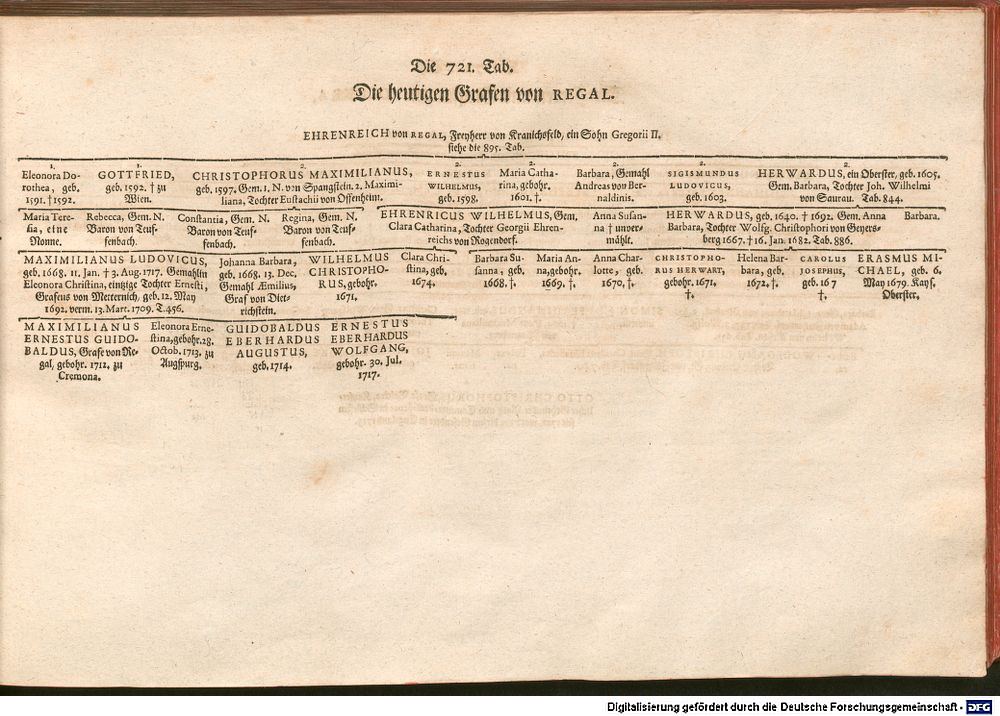 Die 721. Tab.
Die heutigen Grafen von REGAL.
EHRENREICH von REGAL, Freyherr von Kranichsfeld, ein Sohn Gregorii II.
siehe die 895. Tab.
1.
Eleonora Do-
rothea, geb.
1591. † 1592.
1.
GOTTFRIED,
geb. 1592. † zu
Wien.
2.
CHRISTOPHORUS MAXIMILIANUS,
geb. 1597. Gem. 1. N. von Spangstein. 2. Maximi-
liana, Tochter Eustachii von Offenheim.
2.
ERNESTUS
WILHELMUS,
geb. 1598.
2.
Maria Catha-
rina, gebohr.
1601. †.
2.
Barbara, Gemahl
Andreas von Ber-
naldinis.
2.
SIGISMUNDUS
LUDOVICUS,
geb. 1603.
2.
HERWARDUS, ein Oberster, geb. 1605.
Gem. Barbara, Tochter Joh. Wilhelmi
von Saurau. Tab. 844.
Maria Tere-
sia, eine
Nonne.
Rebecca, Gem. N.
Baron von Teuf-
fenbach.
Constantia, Gem. N.
Baron von Teuf-
fenbach.
Regina, Gem. N.
Baron von Teuf-
fenbach.
EHRENRICUS WILHELMUS, Gem.
Clara Catharina, Tochter Georgii Ehren-
reichs von Rogendorf.
Anna Susan-
na † unver-
mählt.
HERWARDUS, geb. 1640. † 1692. Gem. Anna
Barbara, Tochter Wolfg. Christophori von Geyers-
berg 1667. † 16. Jan. 1682. Tab. 886.
Barbara.
MAXIMILIANUS LUDOVICUS,
geb. 1668. 11. Jan. † 3. Aug. 1717. Gemahlin
Eleonora Christina, eintzige Tochter Ernesti,
Grafens von Metternich, geb. 12. May
1692. verm. 13. Mart. 1709. T. 456.
Johanna Barbara,
geb. 1668. 13. Dec.
Gemahl Æmilius,
Graf von Diet-
richstein.
WILHELMUS
CHRISTOPHO-
RUS, gebohr.
1671.
Clara Chri-
stina, geb.
1674.
Barbara Su-
sanna, geb.
1668. †.
Maria An-
na, gebohr.
1669. †.
Anna Char-
lotte, geb.
1670, †.
CHRISTOPHO-
RUS HERWART,
gebohr. 1671.
†.
Helena Bar-
bara, geb.
1672, †.
CAROLUS
JOSEPHUS,
geb. 167
†.
ERASMUS MI-
CHAEL, geb. 6.
May 1679. Kays.
Oberster.
MAXIMILIANUS
ERNESTUS GUIDO-
BALDUS, Grafe von Re-
gal, gebohr. 1712, zu
Cremona.
Eleonora Erne-
stina, gebohr. 28.
Octob. 1713. zu
Augspurg.
GUIDOBALDUS
EBERHARDUS
AUGUSTUS,
geb. 1714.
ERNESTUS
EBERHARDUS
WOLFGANG,
gebohr. 30. Jul.
1717.
Digitalisierung gefördert durch die Deutsche Forschungsgemeinschaft - DFG